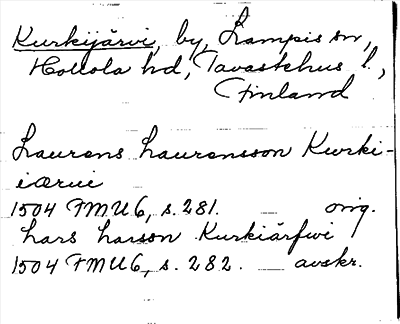 Kurkijärvi, by, Lampis sn,
Hollola hd, Tavastehus l.,
Finland
Laurens Laurensson Kurki-
iærvi
1504 FMU 6, s. 281. orig.
Lars Larsson Kurkiärfwi
1504 FMU 6, s. 282. avskr.